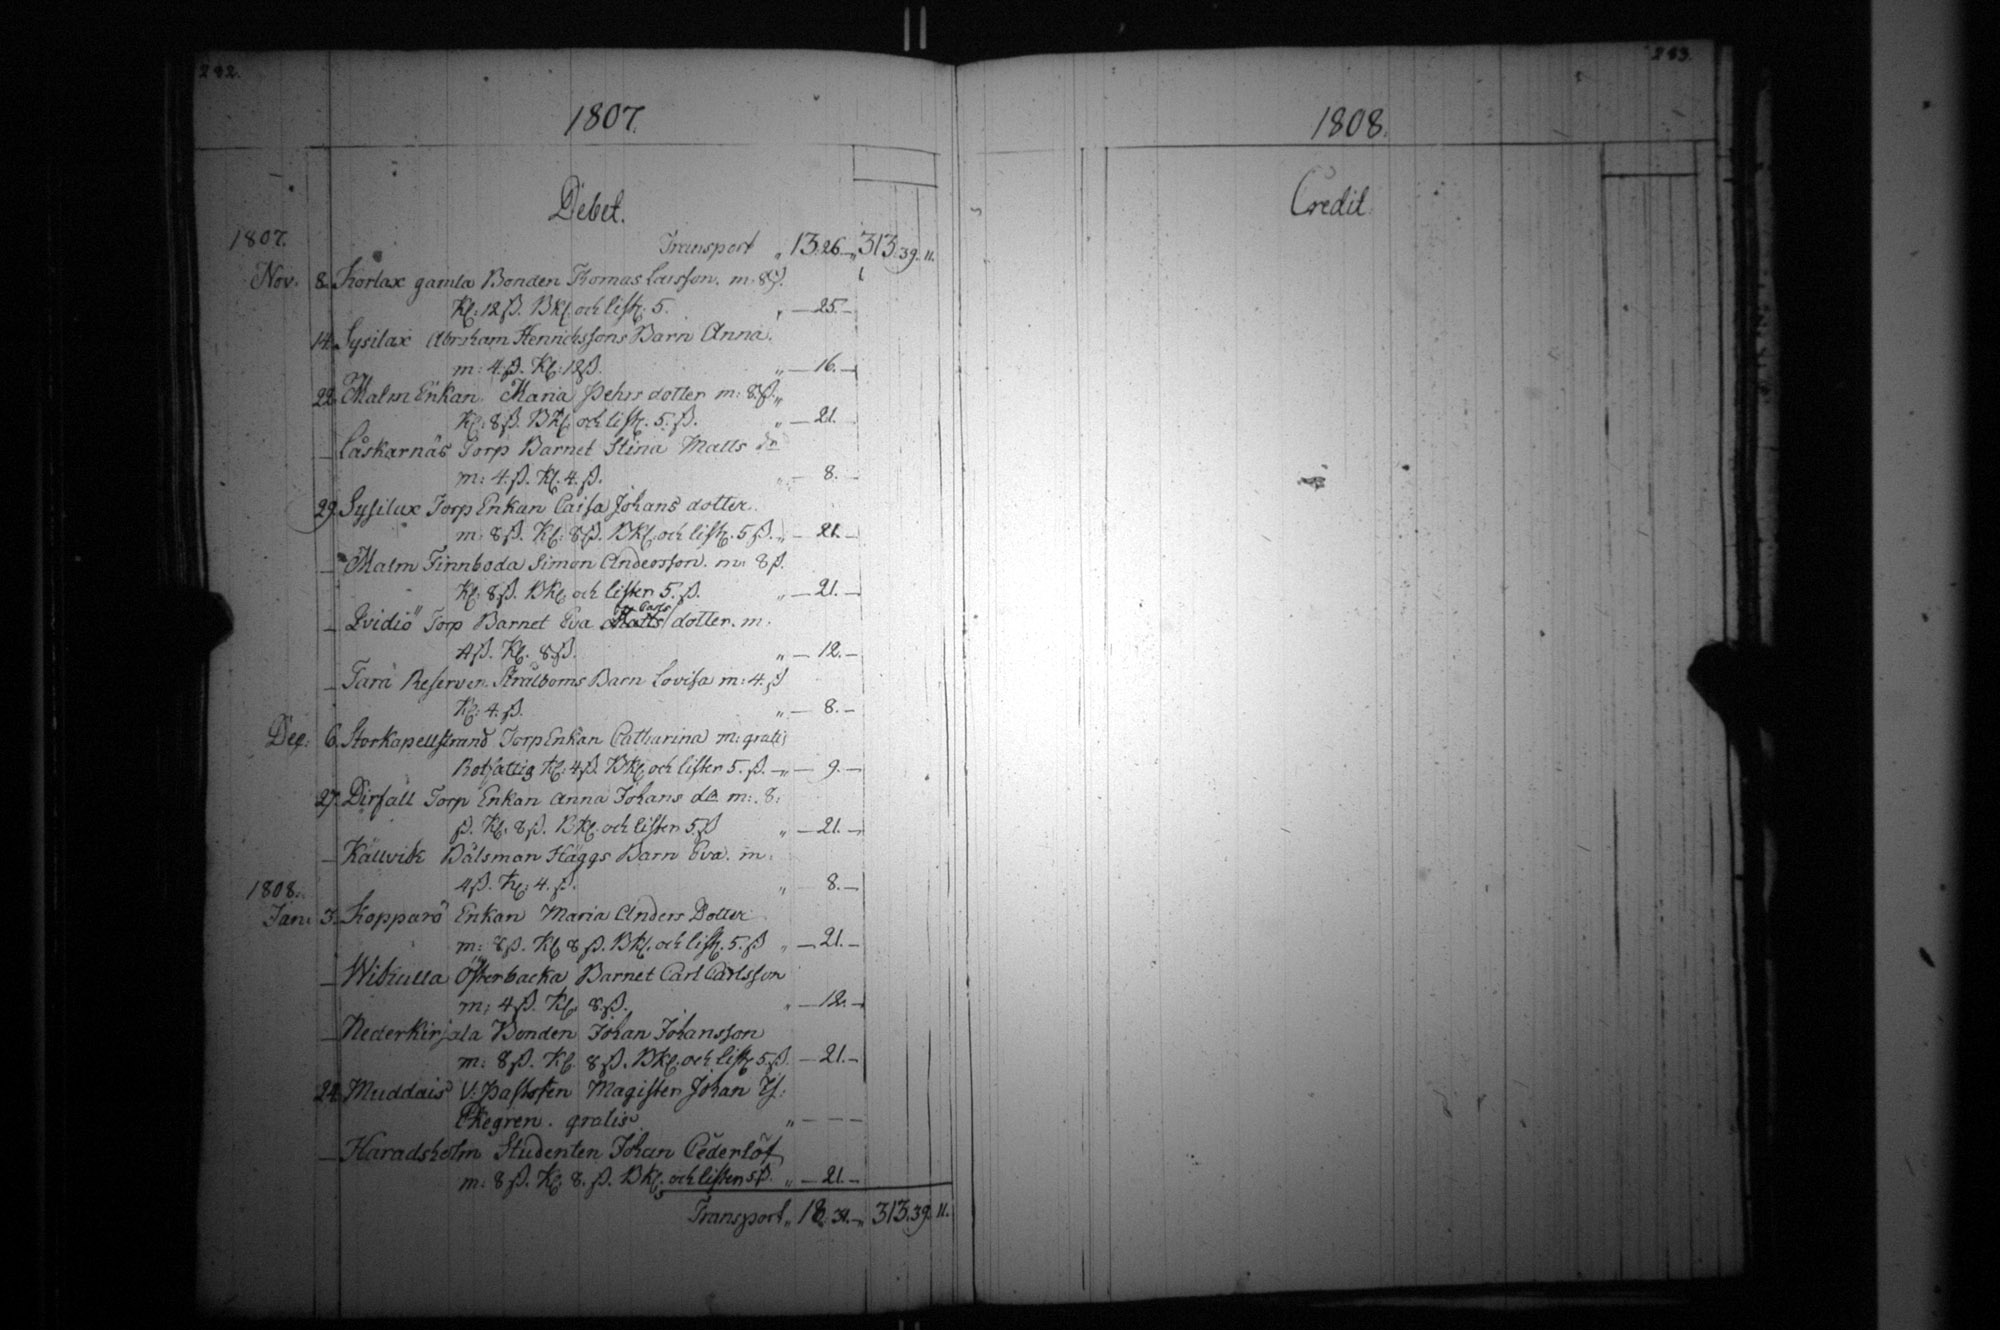 282.
1807.
Debet.
1807. Transport „ 13.26.— 313.39.11.
Nov. 8. Kortax gamla Bonden Thomas Larsson. m: 8ß.
Kl: 12 ß. BKl. och listr. 5. „ — 25.—
14. Sysilax Abraham Henrichssons Barn Anna.
m: 4.ß. Kl: 12ß. „ — 16.—
22. Malm Enkan Maria Pehrs dotter m: 8.ß. „
Kl: 8 ß. BKl. och listr. 5. ß. „ — 21.—
— Låskarnäs Torp Barnet Stina Matts dr
m: 4.ß. Kl. 4.ß. „ — 8.—
29. Sysilax Torp Enkan Caisa Johans dotter.
m: 8 ß. Kl: 8ß. BKl. och listr. 5 ß. „ — 21.—
— Malm Finnboda Simon Andersson. m: 8 ß.
Kl: 8 ß. BKl. och listen 5. ß. „ — 21.—
— Qvidiö Torp Barnet Eva Matts/ Carls/ dotter. m:
4ß. Kl. 8.ß. „ — 12.—
— Tara Reserven Strålboms Barn Lovisa m: 4.ß
Kl: 4.ß. „ — 8.—
Dec: 6. Storkapellstrand Torp Enkan Catharina m: gratis
Rotfattig Kl: 4ß. BKl. och listen 5.ß. „ — 9.—
27. Dirfall Torp Enkan Anna Johans dr m: 8:
ß. Kl: 8 ß. BKl. och listen 5ß „ — 21.—
— Källvik Båtsman Häggs Barn Eva. m:
4ß. Kl: 4.ß. „ — 8.—
1808.
Jan: 3. Kopparö Enkan Maria Anders Dotter
m: 8ß. Kl 8 ß. BKl. och listr. 5.ß „ — 21.—
— Wikiulla Österbacka Barnet Carl Carlsson
m: 4 ß. Kl. 8.ß. „ — 12.—
— Nederkirjala Bonden Johan Johansson
m: 8 ß. Kl. 8 ß. BKl. och listr 5ß. — 21.—
24. Muddais V: Pastoren Magister Johan
Ekegren. gratis „ — — —
— Haradsholm Studenten Johan Cederlöf
m: 8 ß. Kl. 8. ß. BKl. och listen 5ß. „ — 21.—
Transport „ 18. 31.— 313.39.11.
283.
1808.
Credit.